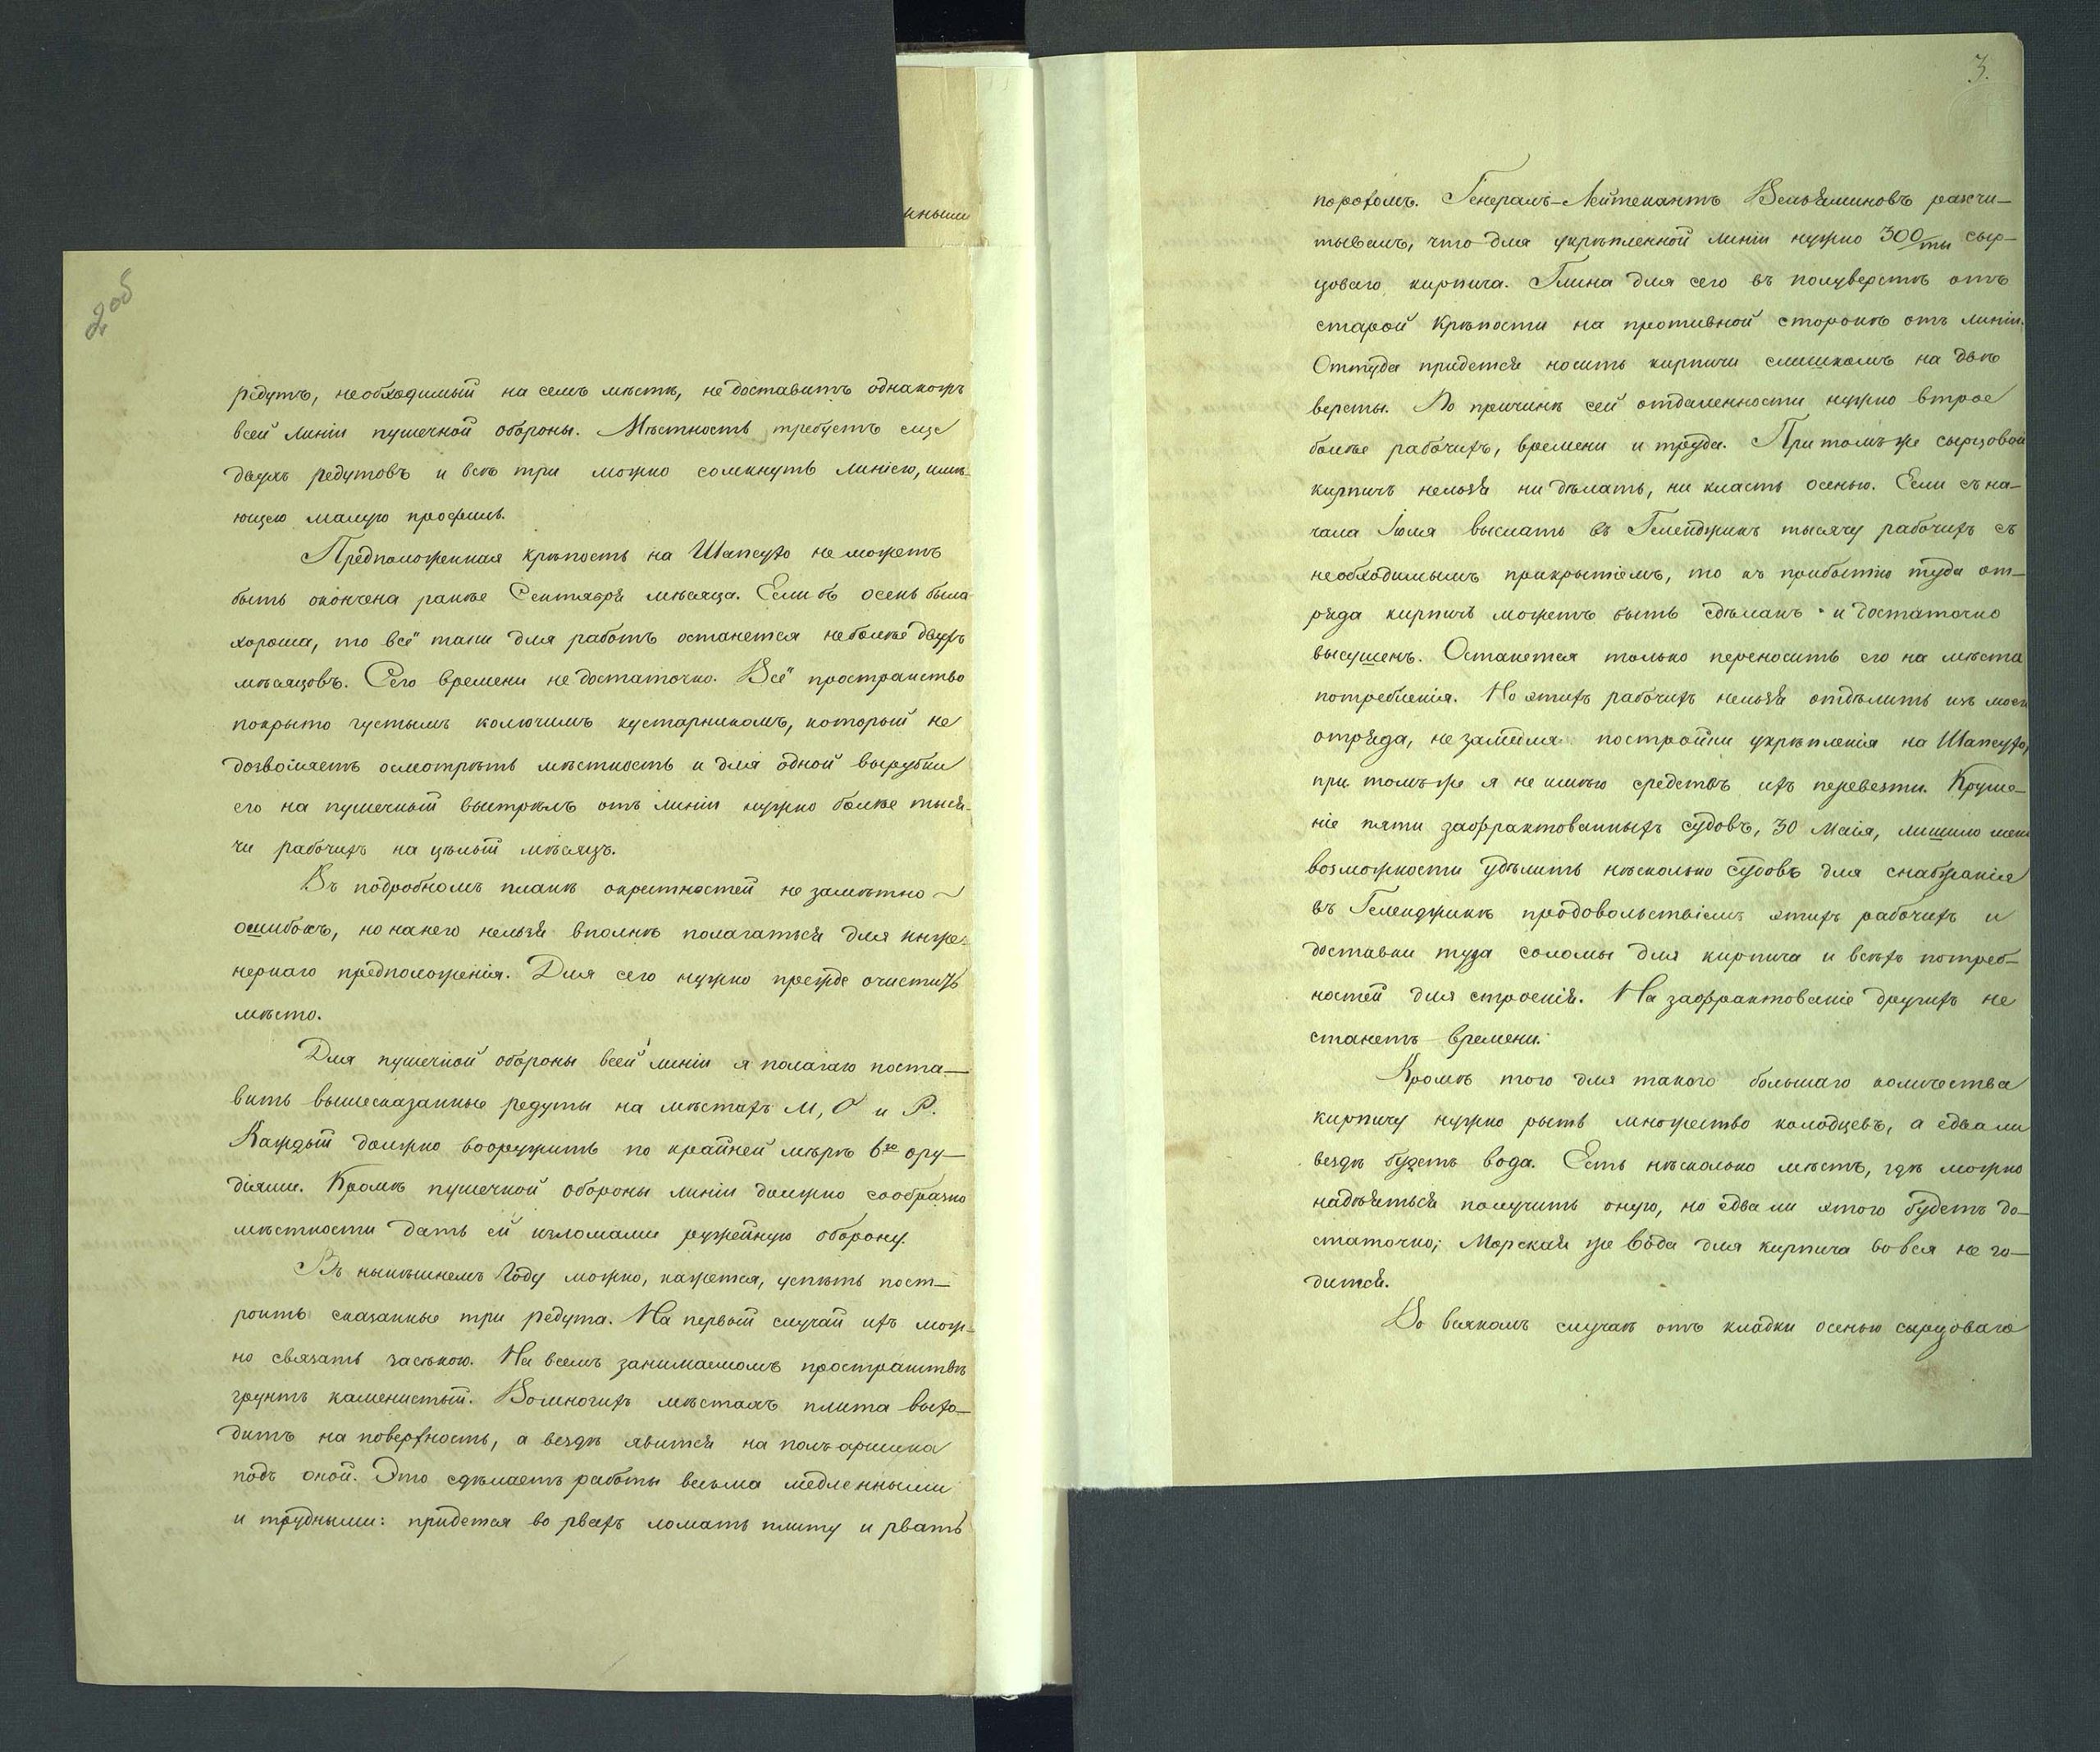 2 об
редутъ, необходимый на семъ мѣстѣ, не доставитъ однакожъ
всей линіи пушечной обороны. Мѣстность требуетъ еще
двухъ редутовъ и всѣ три можно сомкнуть линіею, имѣ-
ющею малую профиль.
Предположенная крѣпость на Шапсухо не можетъ
быть окончена ранѣе Сентября мѣсяца. Если бъ осень была
хороша, то всё таки для работъ останется не болѣе двухъ
мѣсяцовъ. Сего времени не достаточно. Всё пространство
покрыто густымъ колючимъ кустарникомъ, который не
дозволяетъ осмотрѣть мѣстность и для одной вырубки
его на пушечный выстрѣлъ отъ линіи нужно болѣе тыся-
чи рабочихъ на цѣлый мѣсяцъ.
Въ подробномъ планѣ окрестностей не замѣтно
ошибокъ, но на него нельзя вполнѣ полагаться для инже-
нернаго предположенія. Для сего нужно прежде очистить
мѣсто.
Для пушечной обороны всей линіи я полагаю поста-
вить вышесказанные редуты на мѣстахъ М, О и Р.
Каждый должно вооружить по крайней мѣрѣ 6ю ору-
діями. Кромѣ пушечной обороны линіи должно сообразно
мѣстности дать ей изломами ружейную оборону.
Въ нынѣшнемъ году можно, кажется, успѣть пост-
роить сказанные три редута. На первый случай ихъ мож-
но связать засѣкою. На всемъ занимаемомъ пространствѣ
грунтъ каменистый. Во многихъ мѣстахъ плита выхо-
дитъ на поверхность, а вездѣ явится на полъ аршина
подъ оной. Это сдѣлаетъ работы весьма медленными
и трудными: придется во рвахъ ломать плиту и рвать
ными
3.
порохомъ. Генералъ-Лейтенантъ Вельяминовъ разчи-
тывалъ, что для укрѣпленной линіи нужно 300/ты сыр-
цоваго кирпича. Глина для сего въ полуверстѣ отъ
старой крѣпости на противной сторонѣ отъ линіи.
Оттуда придется носить кирпичи слишкомъ на двѣ
версты. По причинѣ сей отдаленности нужно втрое
болѣе рабочихъ, времени и труда. При томъ же сырцовой
кирпичъ нельзя ни дѣлать, ни класть осенью. Если съ на-
чала Іюля выслать въ Геленджикъ тысячу рабочихъ съ
необходимымъ прикрытіемъ, то къ прибытію туда от-
ряда кирпичъ можетъ быть сдѣланъ и достаточно
высушенъ. Останется только переносить его на мѣста
потребленія. Но этихъ рабочихъ нельзя отдѣлить изъ моего
отряда, не замедля постройки укрѣпленія на Шапсухо,
при томъ же я не имѣю средствъ ихъ перевезти. Круше-
ніе пяти зафрактованныхъ судовъ, 30 Маія, лишило меня
возможности удѣлить нѣсколько судовъ для снабженія
въ Геленджикѣ продовольствіемъ этихъ рабочихъ и
доставки туда соломы для кирпича и всѣхъ потреб-
ностей для строенія. На зафрактованіе другихъ не
станетъ времени.
Кромѣ того для такого большаго количества
кирпичу нужно рыть множество колодцевъ, а едва ли
вездѣ будетъ вода. Есть нѣсколько мѣстъ, гдѣ можно
надѣяться получить оную, но едва ли этого будетъ до-
статочно; Морская же вода для кирпича вовся не го-
дится.
Во всякомъ случаѣ отъ кладки осенью сырцоваго